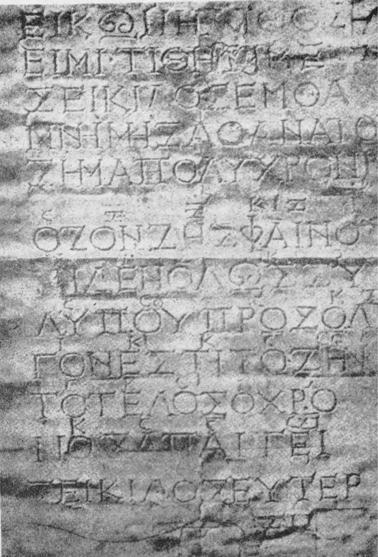 ΕΙΚΩΝΗΛΙΘΟΣ
ΕΙΜΙ·ΤΙΘΗΣΙΜΕ
ΣΕΙΚΙΛΟΣΕΝΘΑ
ΜΝΗΜΗΣΑΘΑΝΑΤΟ
ΣΗΜΑΠΟΛΥΧΡΟΝΙ
ΟΣΟΝΖΗΣΦΑΙΝΟ
ΜΗΔΕΝΟΛΩΣΣΥ
ΛΥΠΟΥΠΡΟΣΟΛ
ΓΟΝΕΣΤΙΤΟΖΗΝ
ΤΟΤΕΛΟΣΟΧΡΟ
ΝΟΣΑΠΑΙΤΕΙ
ΣΕΙΚΙΛΟΣΕΥΤΕΡ
ΖΗ